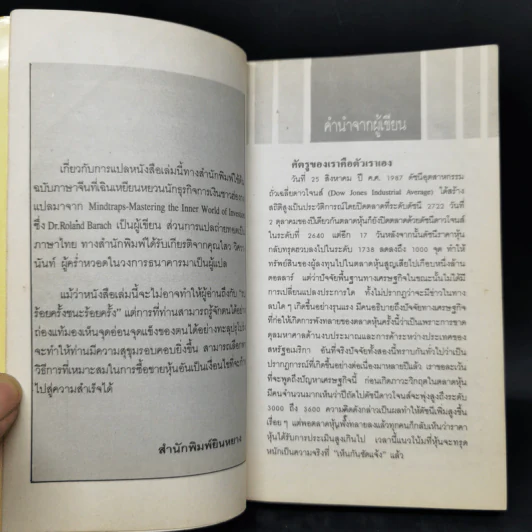 เกี่ยวกับการแปลหนังสือเล่มนี้ทางสำนักพิมพ์ได้
ฉบับภาษาจีนที่เฉินเหยียนหยวนนักธุรกิจการเงินชาว
แปลมาจาก Mindtraps-Mastering the Inner World of
ซึ่ง Dr.Roland Barach เป็นผู้เขียน ส่วนการแปลถ่ายทอด
ภาษาไทย ทางสำนักพิมพ์ได้รับเกียรติจากคุณไสว
นันท์ ผู้คร่ำหวอดในวงการธนาคารมาเป็นผู้แปล
แม้ว่าหนังสือเล่มนี้จะไม่อาจทำให้ผู้อ่านถึงกับ
ร้อยครั้งชนะร้อยครั้ง" แต่การที่ท่านสามารถรู้จักตนได้อย่าง
ถ่องแท้มองเห็นจุดอ่อนจุดแข็งของตนได้อย่างทะลุปรุโปร่ง
จะทำให้ท่านมีความสุขุมรอบคอบยิ่งขึ้น สามารถเลือก
วิธีการที่เหมาะสมในการซื้อขายหุ้นอันเป็นเงื่อนไขที่จะ
ไปสู่ความสำเร็จได้
สำนักพิมพ์ยินหยาง
คำนำจากผู้เขียน
ศัตรูของเราคือตัวเราเอง
วันที่ 25 สิงหาคม ปี ค.ศ. 1987 ดัชนีอุตสาหกรรม
ถัวเฉลี่ยดาวโจนส์ (Dow Jones Industrial Average) ได้สร้าง
สถิติสูงเป็นประวัติการณ์โดยปิดตลาดที่ระดับดัชนี 2722 วันที่
2 ตุลาคมของปีเดียวกันตลาดหุ้นก็ยังปิดตลาดด้วยดัชนีดาวโจนส์
ในระดับที่ 2640 แต่อีก 17 วันหลังจากนั้นดัชนีราคาหุ้น
กลับทรุดฮวบลงไปในระดับ 1738 ลดลงถึง 1000 จุด ทำให้
ทรัพย์สินของผู้ลงทุนไปในตลาดหุ้นสูญเสียไปเกือบหนึ่งล้าน
ดอลลาร์ แต่ว่าปัจจัยพื้นฐานทางเศรษฐกิจในขณะนั้นไม่ได้มี
การเปลี่ยนแปลงประการใด ทั้งไม่ปรากฏว่าจะมีข่าวในทาง
ลบใด ๆ เกิดขึ้นอย่างรุนแรง มีคนอธิบายถึงปัจจัยทางเศรษฐกิจ
ที่ก่อให้เกิดการพังทลายของตลาดหุ้นครั้งนี้ว่าเป็นเพราะการขาด
ดุลมหาศาลด้านงบประมาณและการค้าระหว่างประเทศของ
สหรัฐอเมริกา อันที่จริงปัจจัยทั้งสองนี้ทราบกันทั่วไปว่าเป็น
ปรากฏการณ์ที่เกิดขึ้นอย่างต่อเนื่องมาหลายปีแล้ว เราขอละเว้น
ที่จะพูดถึงปัญหาเศรษฐกิจนี้ ก่อนเกิดภาวะวิกฤตในตลาดหุ้น
มีคนจำนวนมากเห็นว่าปีถัดไปดัชนีดาวโจนส์จะพุ่งสูงถึงระดับ
3000 ถึง 3600 ความคิดดังกล่าวเป็นผลทำให้ดัชนีเพิ่มสูงขึ้น
เรื่อยๆ แต่พอตลาดหุ้นพังทลายลงแล้วทุกคนก็กลับเห็นว่าราคา
หุ้นได้รับการประเมินสูงเกินไป เวลานี้แนวโน้มที่หุ้นจะทรุด
หนักเป็นความจริงที่ "เห็นกันชัดแจ้ง" แล้ว